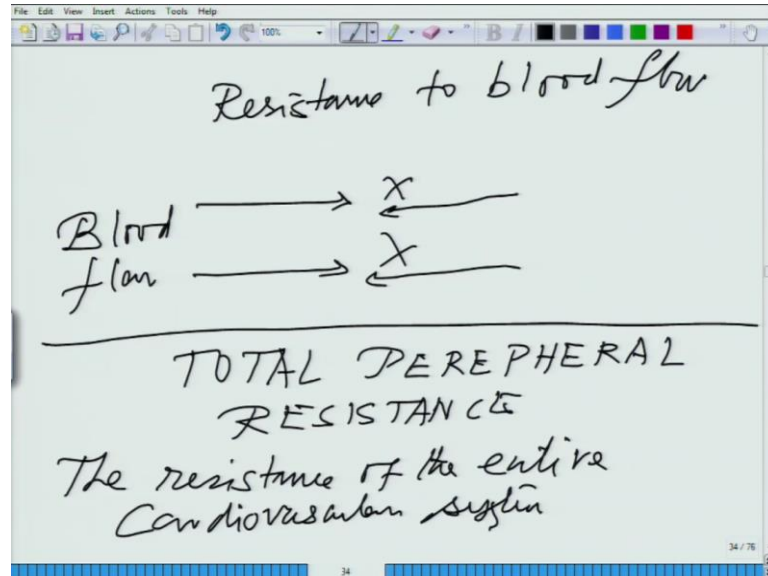 File Edit View Insert Actions Tools Help
100%
B I
Resistance to blood flow
X
Blood
X
flow
TOTAL PEREPHERAL
RESISTANCE
The resistance of the entire
Cardiovascular system
34 / 76
34